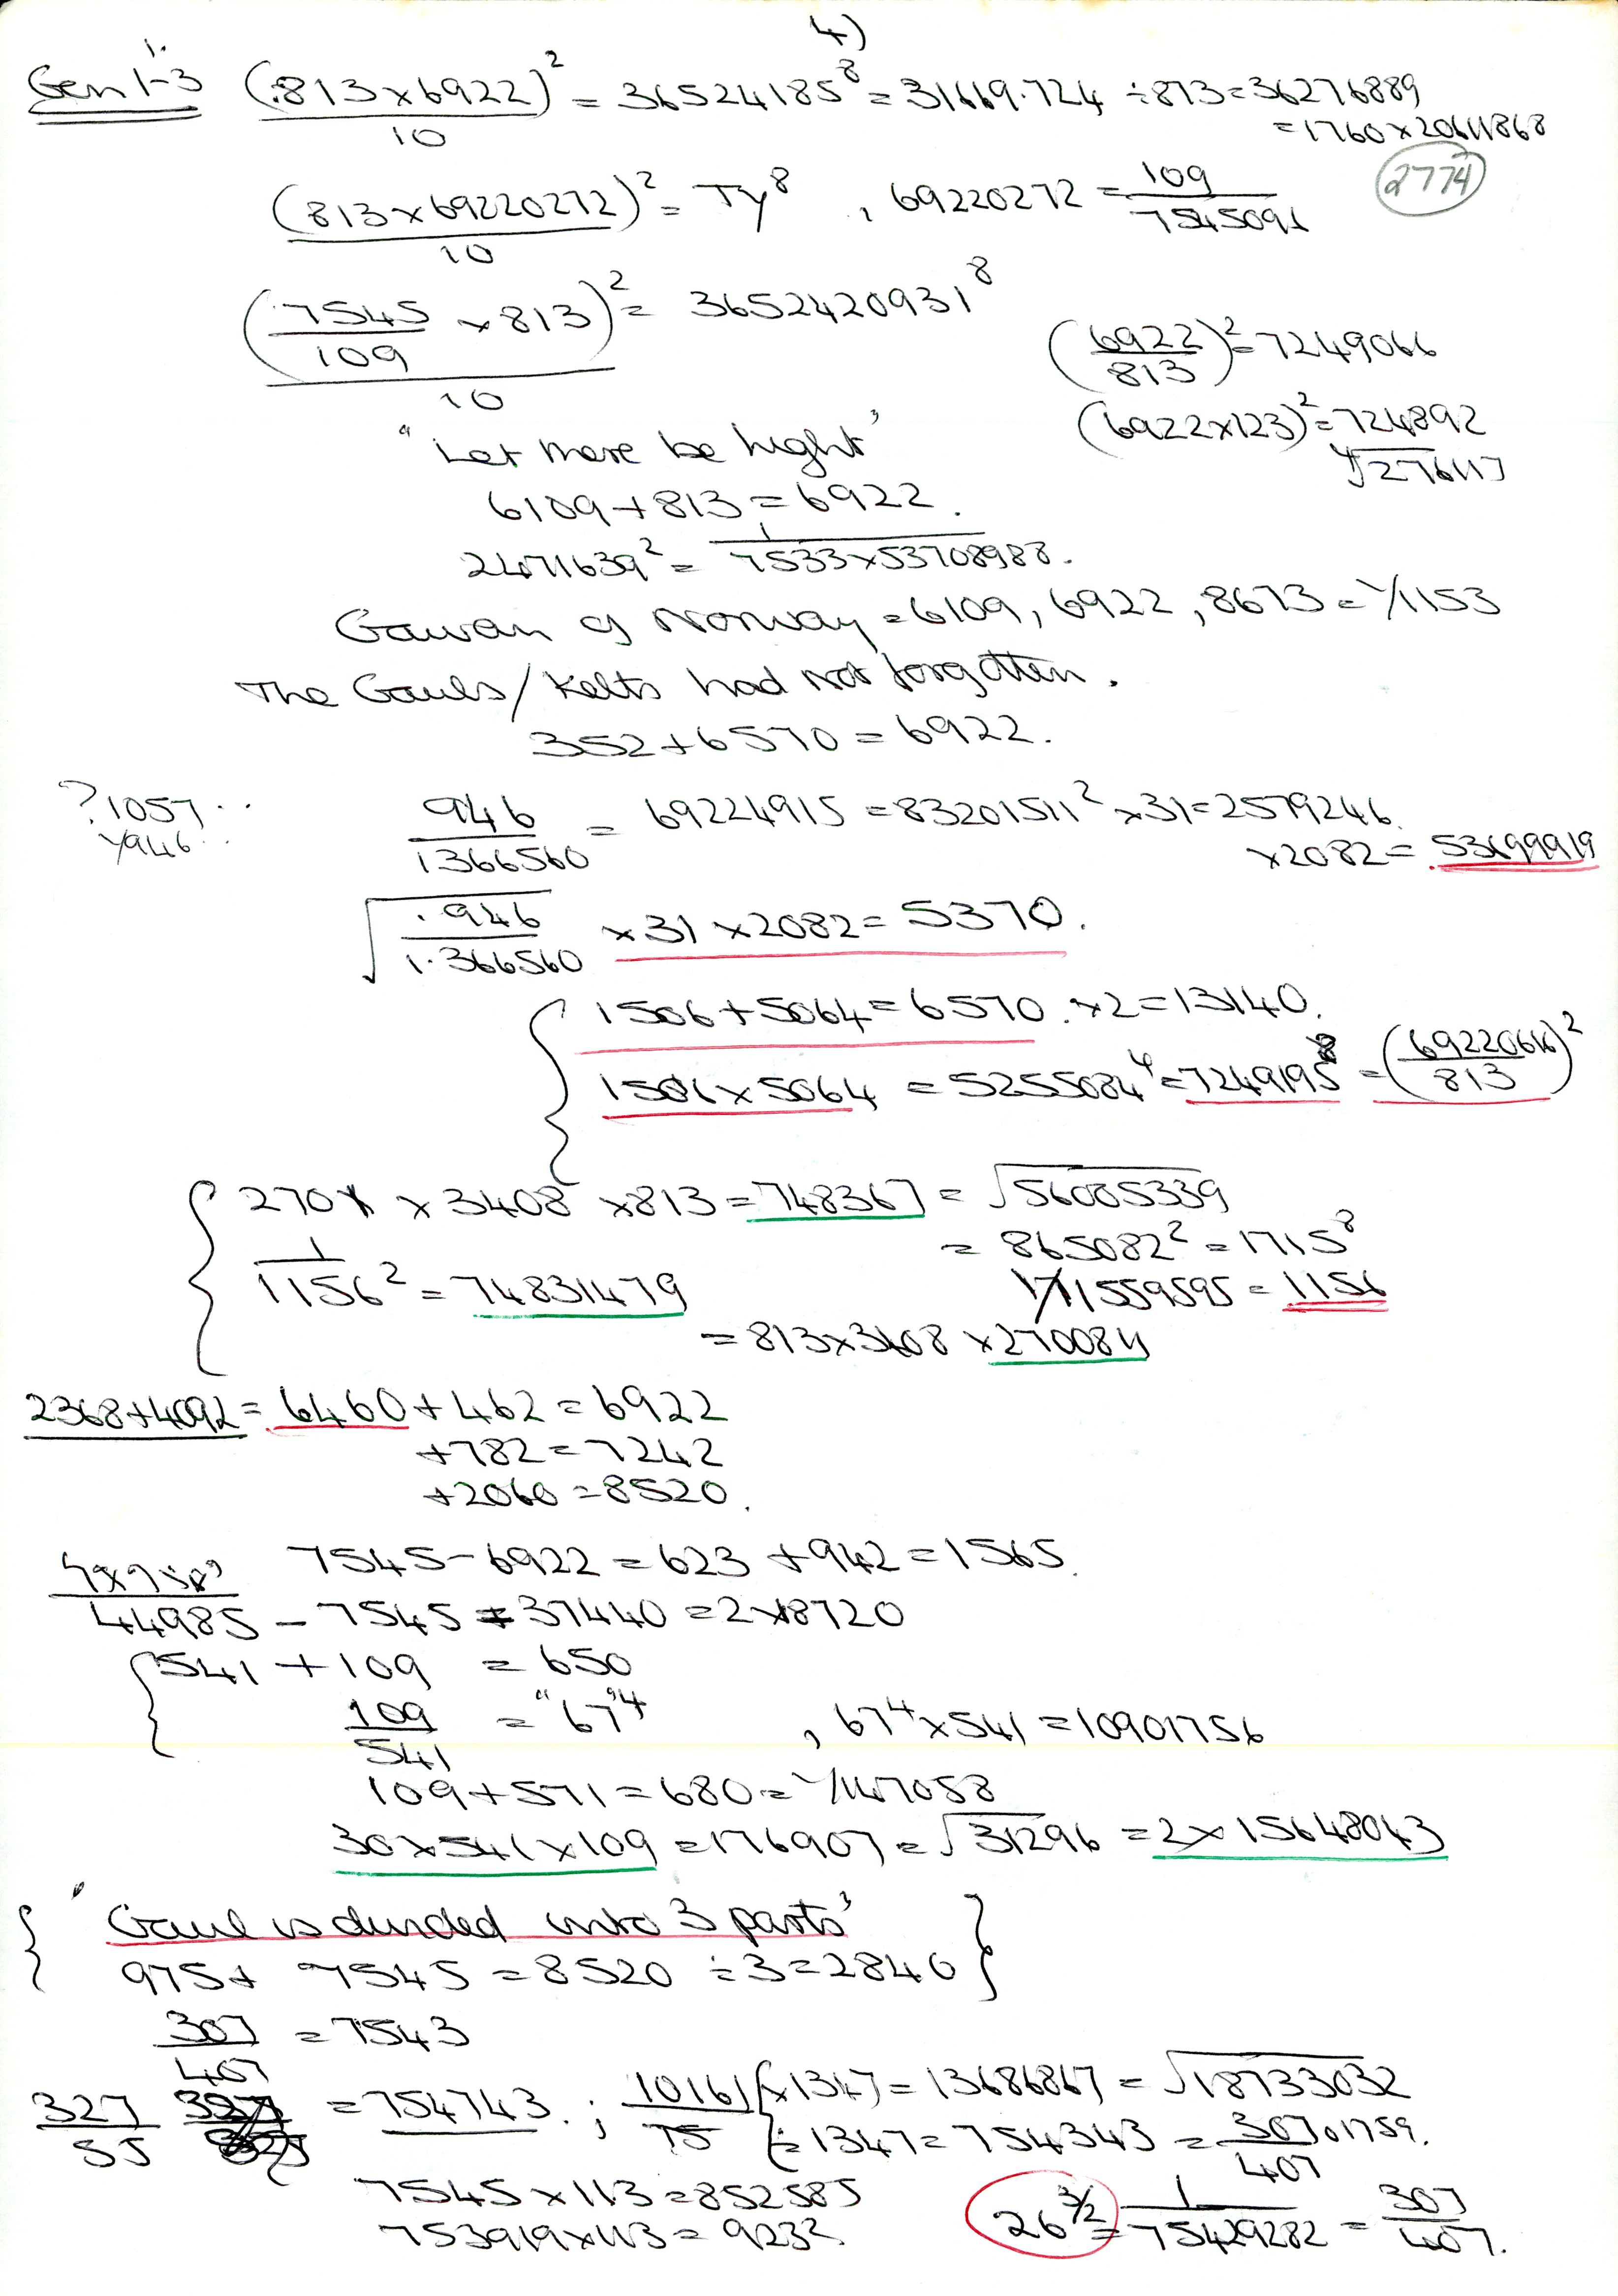 4)
1.
Gen 1-3 (.813×6922)² / 10 = 36524185⁸ = 31669.724 ÷ 873 = 36276889
= 1760×20611868
2774
(813×69220272)² / 10 = Ty⁸ , 69220272 = 109/7545091
((7545/109 × 813) / 10)² = 3652420931⁸
(6922/813)² = 7249066
(6922×123)² = 724892
⁴√276117
"Let there be light"
6109 + 813 = 6922.
24711639² = 1/7533×53708988.
Gawan of Norway = 6109, 6922, 8673 = 1/1153
The Gauls/Kelts had not forgotten.
352 + 6570 = 6922.
?1057..
1/946..
946/1366560 = 69224915 = 83201511² ×31 = 2579246.
×2082 = 53699919
√(.946/1.366560) ×31 ×2082 = 5370.
1506 + 5064 = 6570. ×2 = 13140.
1506 × 5064 = 5255084⁴ = 7249195⁸ = (69220616/813)²
270 × 3408 × 813 = 748367 = √56005339
= 865082² = 1715⁸
1/1156² = 74831479
1/11559595 = 1156
= 813×3408×270084
2368+4092 = 6460 + 462 = 6922
+782 = 7242
+2060 = 8520.
7545 - 6922 = 623 + 942 = 1565.
44985 - 7545 = 37440 = 2×18720
541 + 109 = 650
109/541 = "67"⁴ , 67⁴×541 = 10901756
109 + 571 = 680 = 1/147058
30×541×109 = 176907 = √31296 = 2×15648043
'Gaul is divided into 3 parts'
975 + 7545 = 8520 ÷3 = 2840
307/407 = 7543
327/55 = 754743. ; 10161/75 { ×1347 = 13686867 = √18733032
÷1347 = 754343 = 307.01759/407.
7545×113 = 852585
753919×113 = 9232
26^3/2 = 1/75429282 = 307/407.